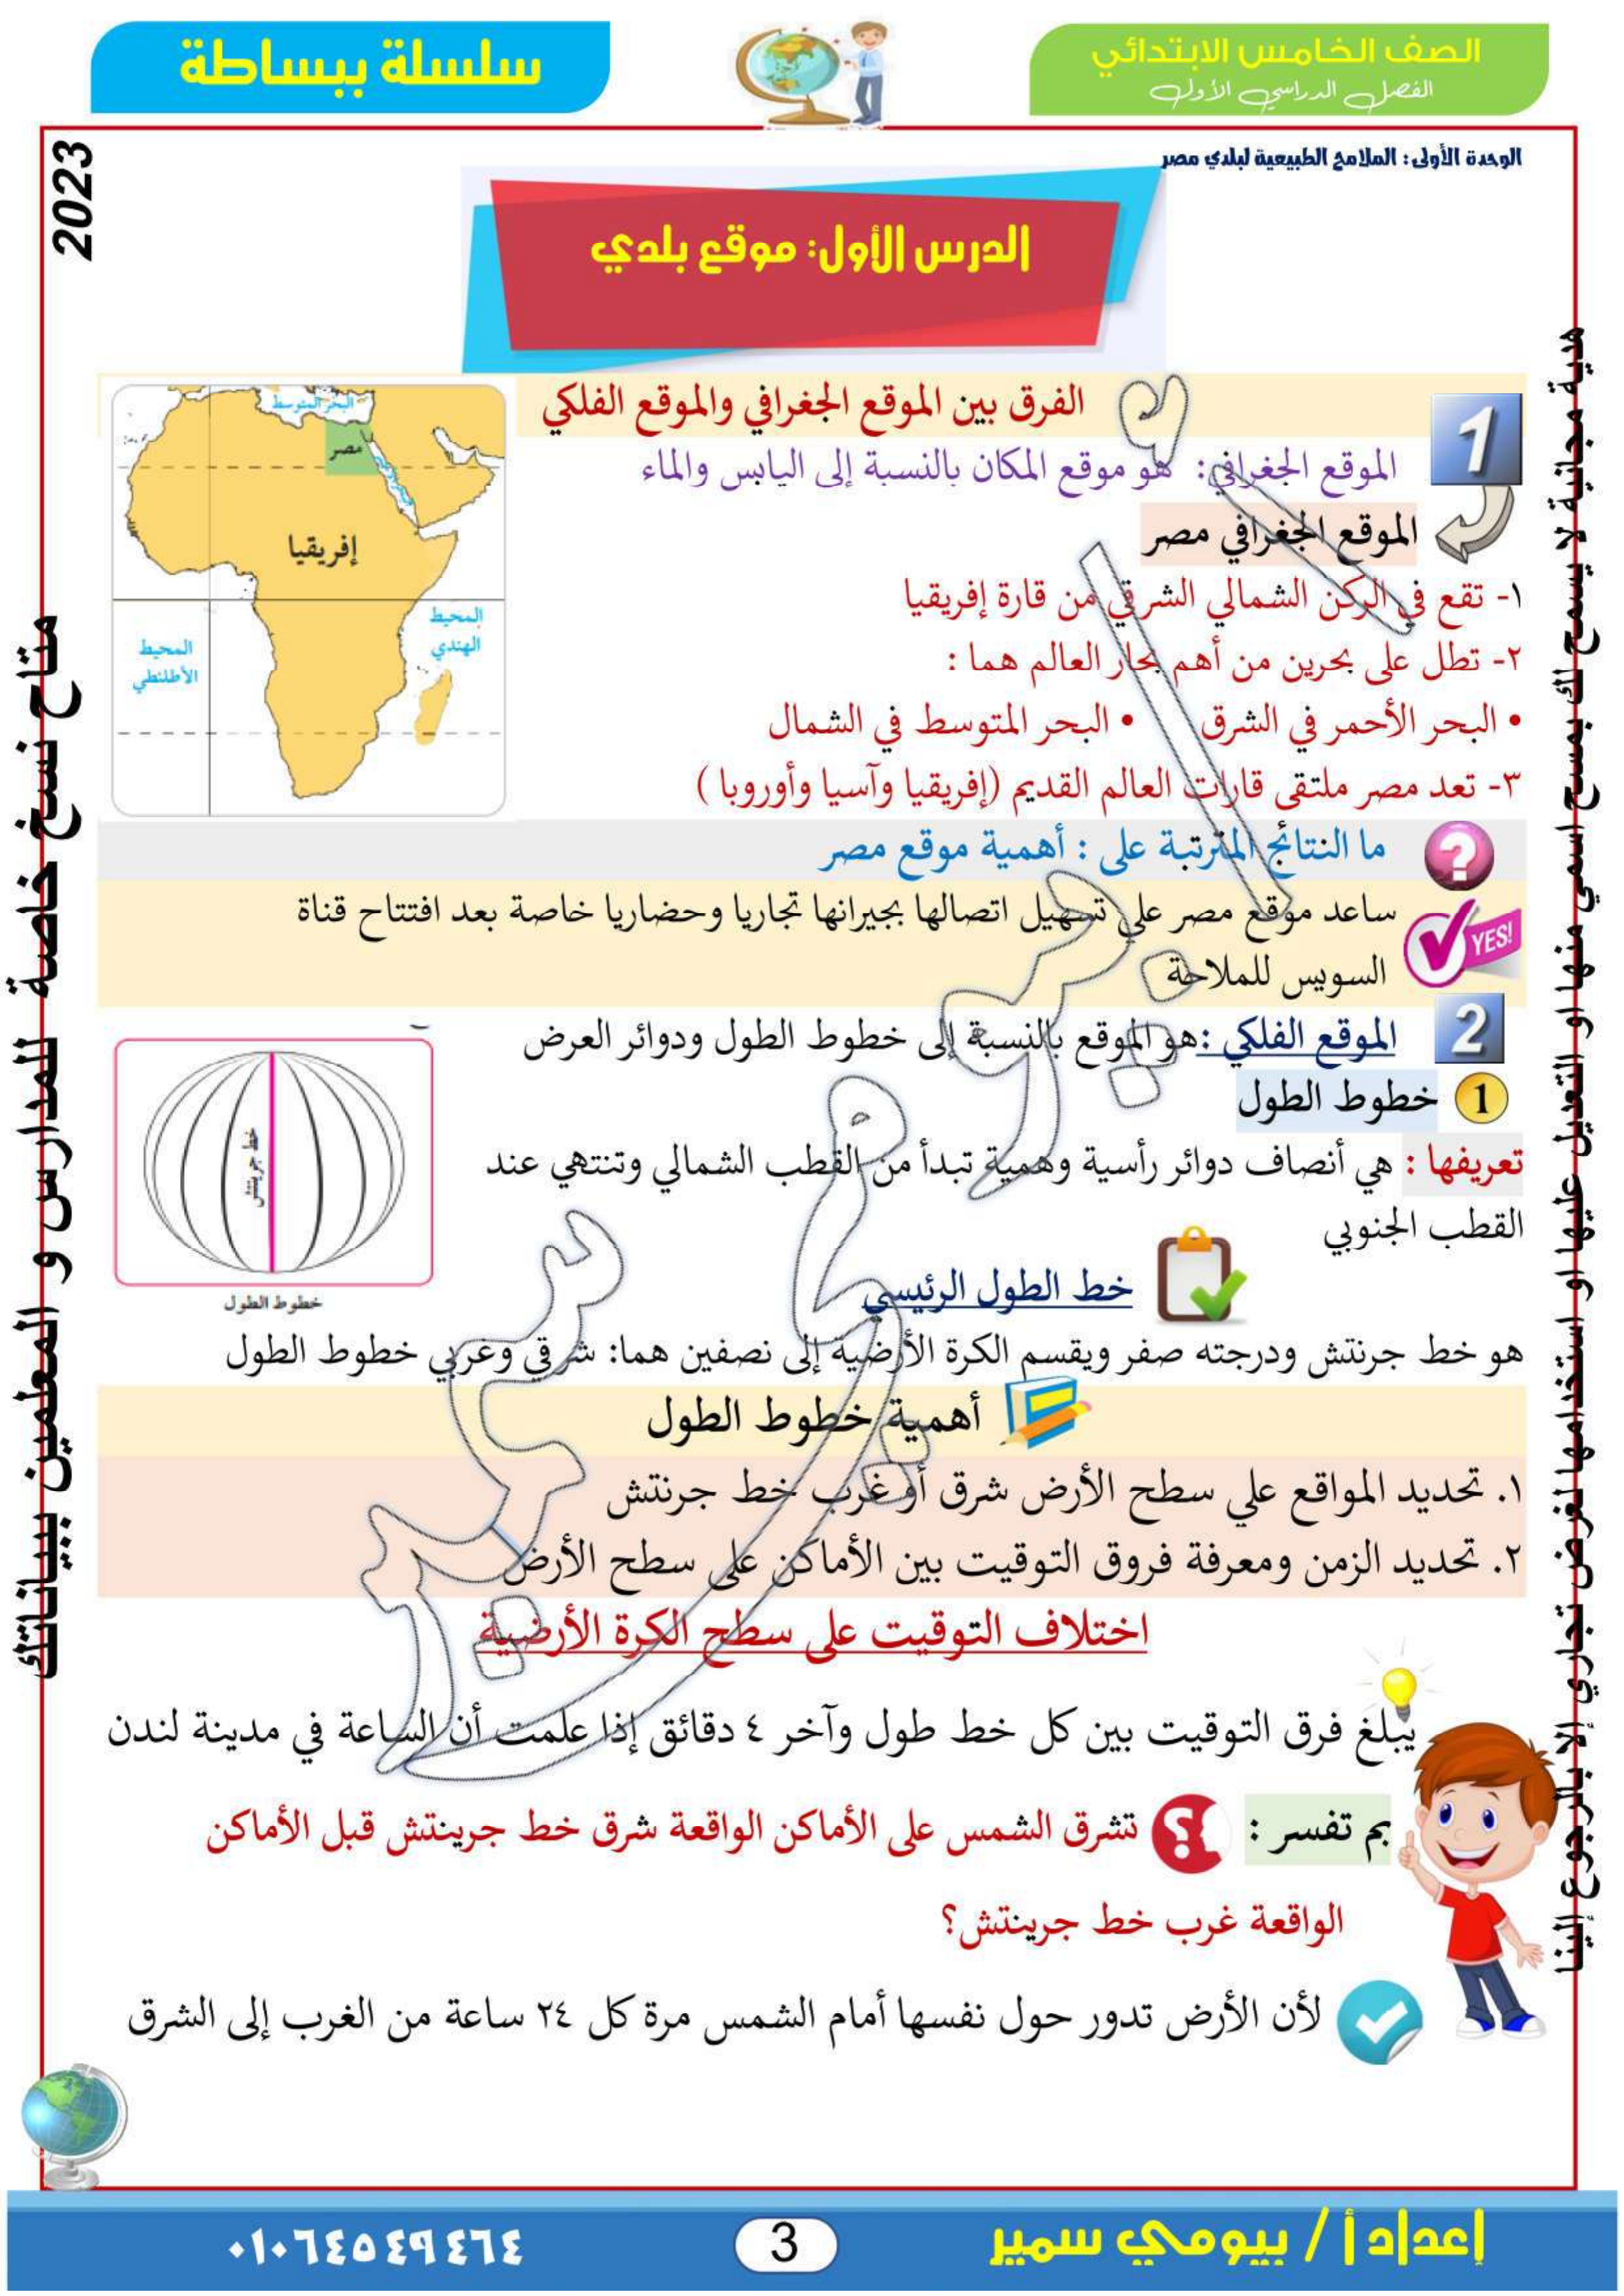 الصف الخامس الابتدائي
الفصل الدراسي الأول
سلسلة ببساطة
2023
الوحدة الأولى: الملامح الطبيعية لبلدي مصر
الدرس الأول: موقع بلدي
1
الفرق بين الموقع الجغرافي والموقع الفلكي
الموقع الجغرافي: هو موقع المكان بالنسبة إلى اليابس والماء
الموقع الجغرافي مصر
١- تقع في الركن الشمالي الشرقي من قارة إفريقيا
٢- تطل على بحرين من أهم بحار العالم هما :
• البحر الأحمر في الشرق • البحر المتوسط في الشمال
٣- تعد مصر ملتقى قارات العالم القديم (إفريقيا وآسيا وأوروبا )
البحر المتوسط
مصر
إفريقيا
المحيط الهندي
المحيط الأطلنطي
ما النتائج المترتبة على : أهمية موقع مصر
YES!
ساعد موقع مصر علي تسهيل اتصالها بجيرانها تجاريا وحضاريا خاصة بعد افتتاح قناة
السويس للملاحة
2
الموقع الفلكي :هو الموقع بالنسبة إلى خطوط الطول ودوائر العرض
1 خطوط الطول
تعريفها : هي أنصاف دوائر رأسية وهمية تبدأ من القطب الشمالي وتنتهي عند
القطب الجنوبي
خط جرينتش
خطوط الطول
خط الطول الرئيسي
هو خط جرنتش ودرجته صفر ويقسم الكرة الأرضية إلى نصفين هما: شرقي وغربي خطوط الطول
أهمية خطوط الطول
١. تحديد المواقع علي سطح الأرض شرق أو غرب خط جرنتش
٢. تحديد الزمن ومعرفة فروق التوقيت بين الأماكن على سطح الأرض
اختلاف التوقيت على سطح الكرة الأرضية
يبلغ فرق التوقيت بين كل خط طول وآخر ٤ دقائق إذا علمت أن الساعة في مدينة لندن
بم تفسر : تشرق الشمس على الأماكن الواقعة شرق خط جرينتش قبل الأماكن
الواقعة غرب خط جرينتش؟
لأن الأرض تدور حول نفسها أمام الشمس مرة كل ٢٤ ساعة من الغرب إلى الشرق
هدية مجانية لا يسمح لك بمسح اسمي منها او التعديل عليها او استخدامها لغرض تجاري إلا بالرجوع إلينا
متاح نسخ خاصة للمدارس و المعلمين ببياناتك
أ / بيومي سمير
إعداد أ / بيومي سمير
3
٠١٠٦٤٥٤٩٤٦٤